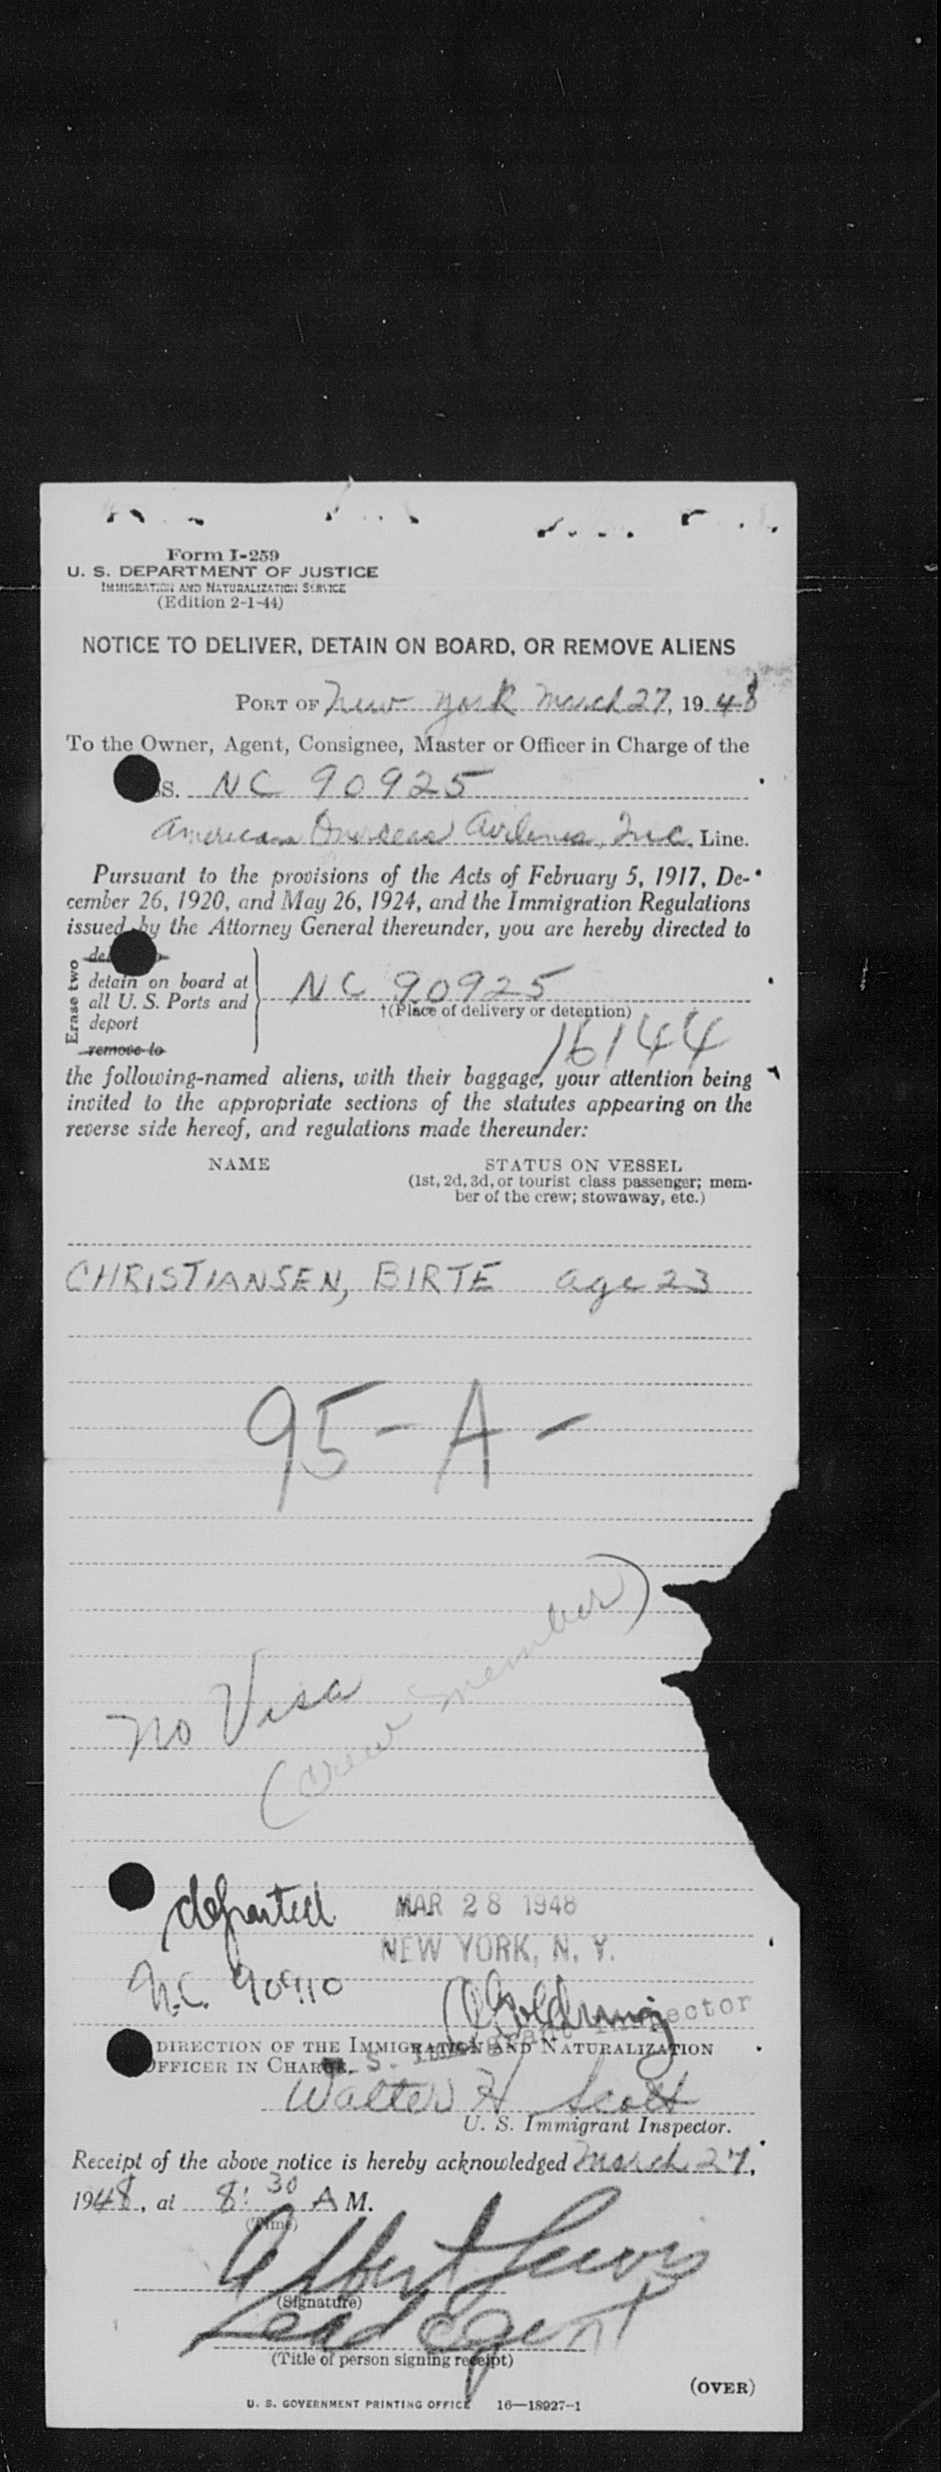 Form I-259
U. S. DEPARTMENT OF JUSTICE
IMMIGRATION AND NATURALIZATION SERVICE
(Edition 2-1-44)
NOTICE TO DELIVER, DETAIN ON BOARD, OR REMOVE ALIENS
PORT OF New York March 27, 1948
To the Owner, Agent, Consignee, Master or Officer in Charge of the
SS. NC 90925
American Overseas Airlines, Inc. Line.
Pursuant to the provisions of the Acts of February 5, 1917, De-
cember 26, 1920, and May 26, 1924, and the Immigration Regulations
issued by the Attorney General thereunder, you are hereby directed to
Erase two
detain on board at
all U. S. Ports and
deport
remove to
NC 90925
†(Place of delivery or detention)
16144
the following-named aliens, with their baggage, your attention being
invited to the appropriate sections of the statutes appearing on the
reverse side hereof, and regulations made thereunder:
NAME STATUS ON VESSEL
(1st, 2d, 3d, or tourist class passenger; mem-
ber of the crew; stowaway, etc.)
CHRISTIANSEN, BIRTE age 23
95-A-
No Visa
(Crew member)
departed MAR 28 1948
NEW YORK, N. Y.
N.C. 90910
U. S. Immigrant Inspector
DIRECTION OF THE IMMIGRATION AND NATURALIZATION
OFFICER IN CHARGE.
Walter H Scott
U. S. Immigrant Inspector.
Receipt of the above notice is hereby acknowledged March 27,
1948, at 8:30 A M.
(Time)
Albert Lewis
(Signature)
Lead Agent
(Title of person signing receipt)
(OVER)
U. S. GOVERNMENT PRINTING OFFICE 16—18927-1